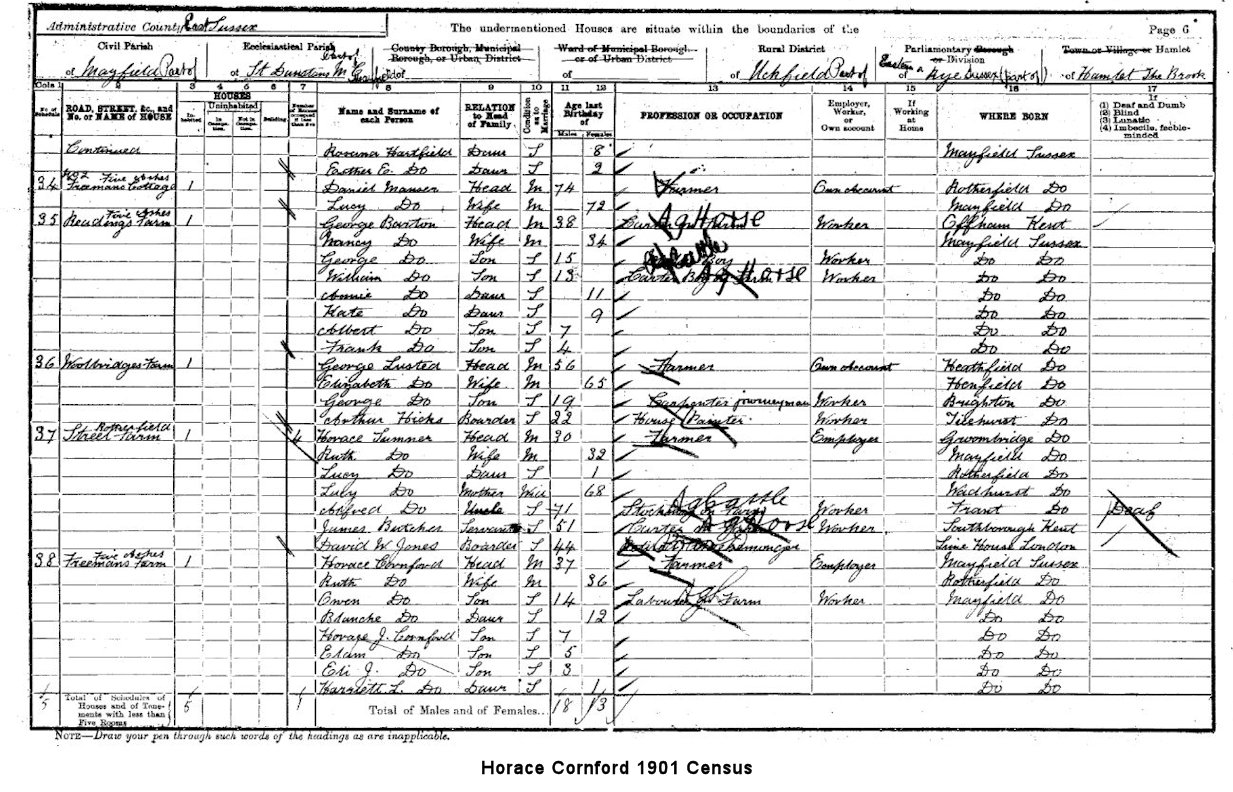 Administrative County East Sussex The undermentioned Houses are situate within the boundaries of the Page 6
Civil Parish Ecclesiastical Parish County Borough, Municipal Borough, or Urban District Ward of Municipal Borough or of Urban District Rural District Parliamentary Borough or Division Town or Village or Hamlet
of Mayfield Part of of St Dunstans Part of of of of Uckfield Part of of Rye Sussex (part of) of Hamlet The Brook
Cols 1 2 3 4 5 6 7 8 9 10 11 12 13 14 15 16 17
No. of Schedule ROAD, STREET, &c., and No. or NAME of HOUSE HOUSES Inhabited Uninhabited In Occupation Not in Occupation Building Number of Rooms occupied if less than five Name and Surname of each Person RELATION to Head of Family Condition as to Marriage Age last Birthday of Males Females PROFESSION OR OCCUPATION Employer, Worker, or Own account If Working at Home WHERE BORN If (1) Deaf and Dumb (2) Blind (3) Lunatic (4) Imbecile, feeble-minded
Continued Rosena Hartfield Daur S 8 Mayfield Sussex
Esther E. Do Daur S 2
34 No 2 Five Ashes Freemans Cottage 1 Daniel Manser Head M 74 Farmer Own account Rotherfield Do
Lucy Do Wife M 72 Mayfield Do
35 Five Ashes Readings Farm 1 George Barton Head M 38 Carter on Farm Ag Horse Worker Offham Kent
Nancy Do Wife M 34 Mayfield Sussex
George Do Son S 15 Boy Ag Cattle Worker Do Do
William Do Son S 13 Carter Boy on Farm Ag Horse Worker Do Do
Annie Do Daur S 11 Do Do
Kate Do Daur S 9 Do Do
Albert Do Son S 7 Do Do
Frank Do Son S 4 Do Do
36 Woolbridges Farm 1 George Lusted Head M 56 Farmer Own account Heathfield Do
Elizabeth Do Wife M 65 Henfield Do
George Do Son S 19 Carpenter journeyman Worker Brighton Do
Arthur Hicks Boarder S 22 House Painter Worker Ticehurst Do
37 Rotherfield Street Farm 1 4 Horace Sumner Head M 30 Farmer Employer Groombridge Do
Ruth Do Wife M 32 Mayfield Do
Lucy Do Daur S 1 Rotherfield Do
Lucy Do Mother Wid 68 Wadhurst Do
Alfred Do Uncle S 71 Stockman on Farm Ag Cattle Worker Frant Do Deaf
James Butcher Servant S 51 Carter on Farm Ag Horse Worker Southborough Kent
David W. Jones Boarder S 44 Lime House London
38 Five Ashes Freemans Farm 1 Horace Cornford Head M 37 Farmer Employer Mayfield Sussex
Ruth Do Wife M 36 Rotherfield Do
Owen Do Son S 14 Labourer on Farm Ag Worker Mayfield Do
Blanche Do Daur S 12 Do Do
Horace J. Cornford Son S 7 Do Do
Elam Do Son S 5 Do Do
Eli J. Do Son S 3 Do Do
Harriett L. Do Daur S 1 Do Do
5 Total of Schedules of Houses and of Tenements with less than Five Rooms 5 1 Total of Males and of Females.. 18 13
NOTE—Draw your pen through such words of the headings as are inapplicable.
Horace Cornford 1901 Census